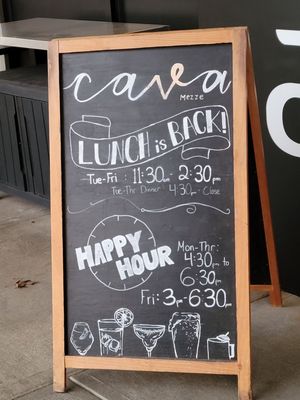 cava
Mezze
LUNCH is BACK!
Tue-Fri: 11:30am-2:30pm
Tue-Thr Dinner 4:30pm-Close
HAPPY HOUR
Mon-Thr:
4:30pm to
6:30pm
Fri: 3pm-6:30pm